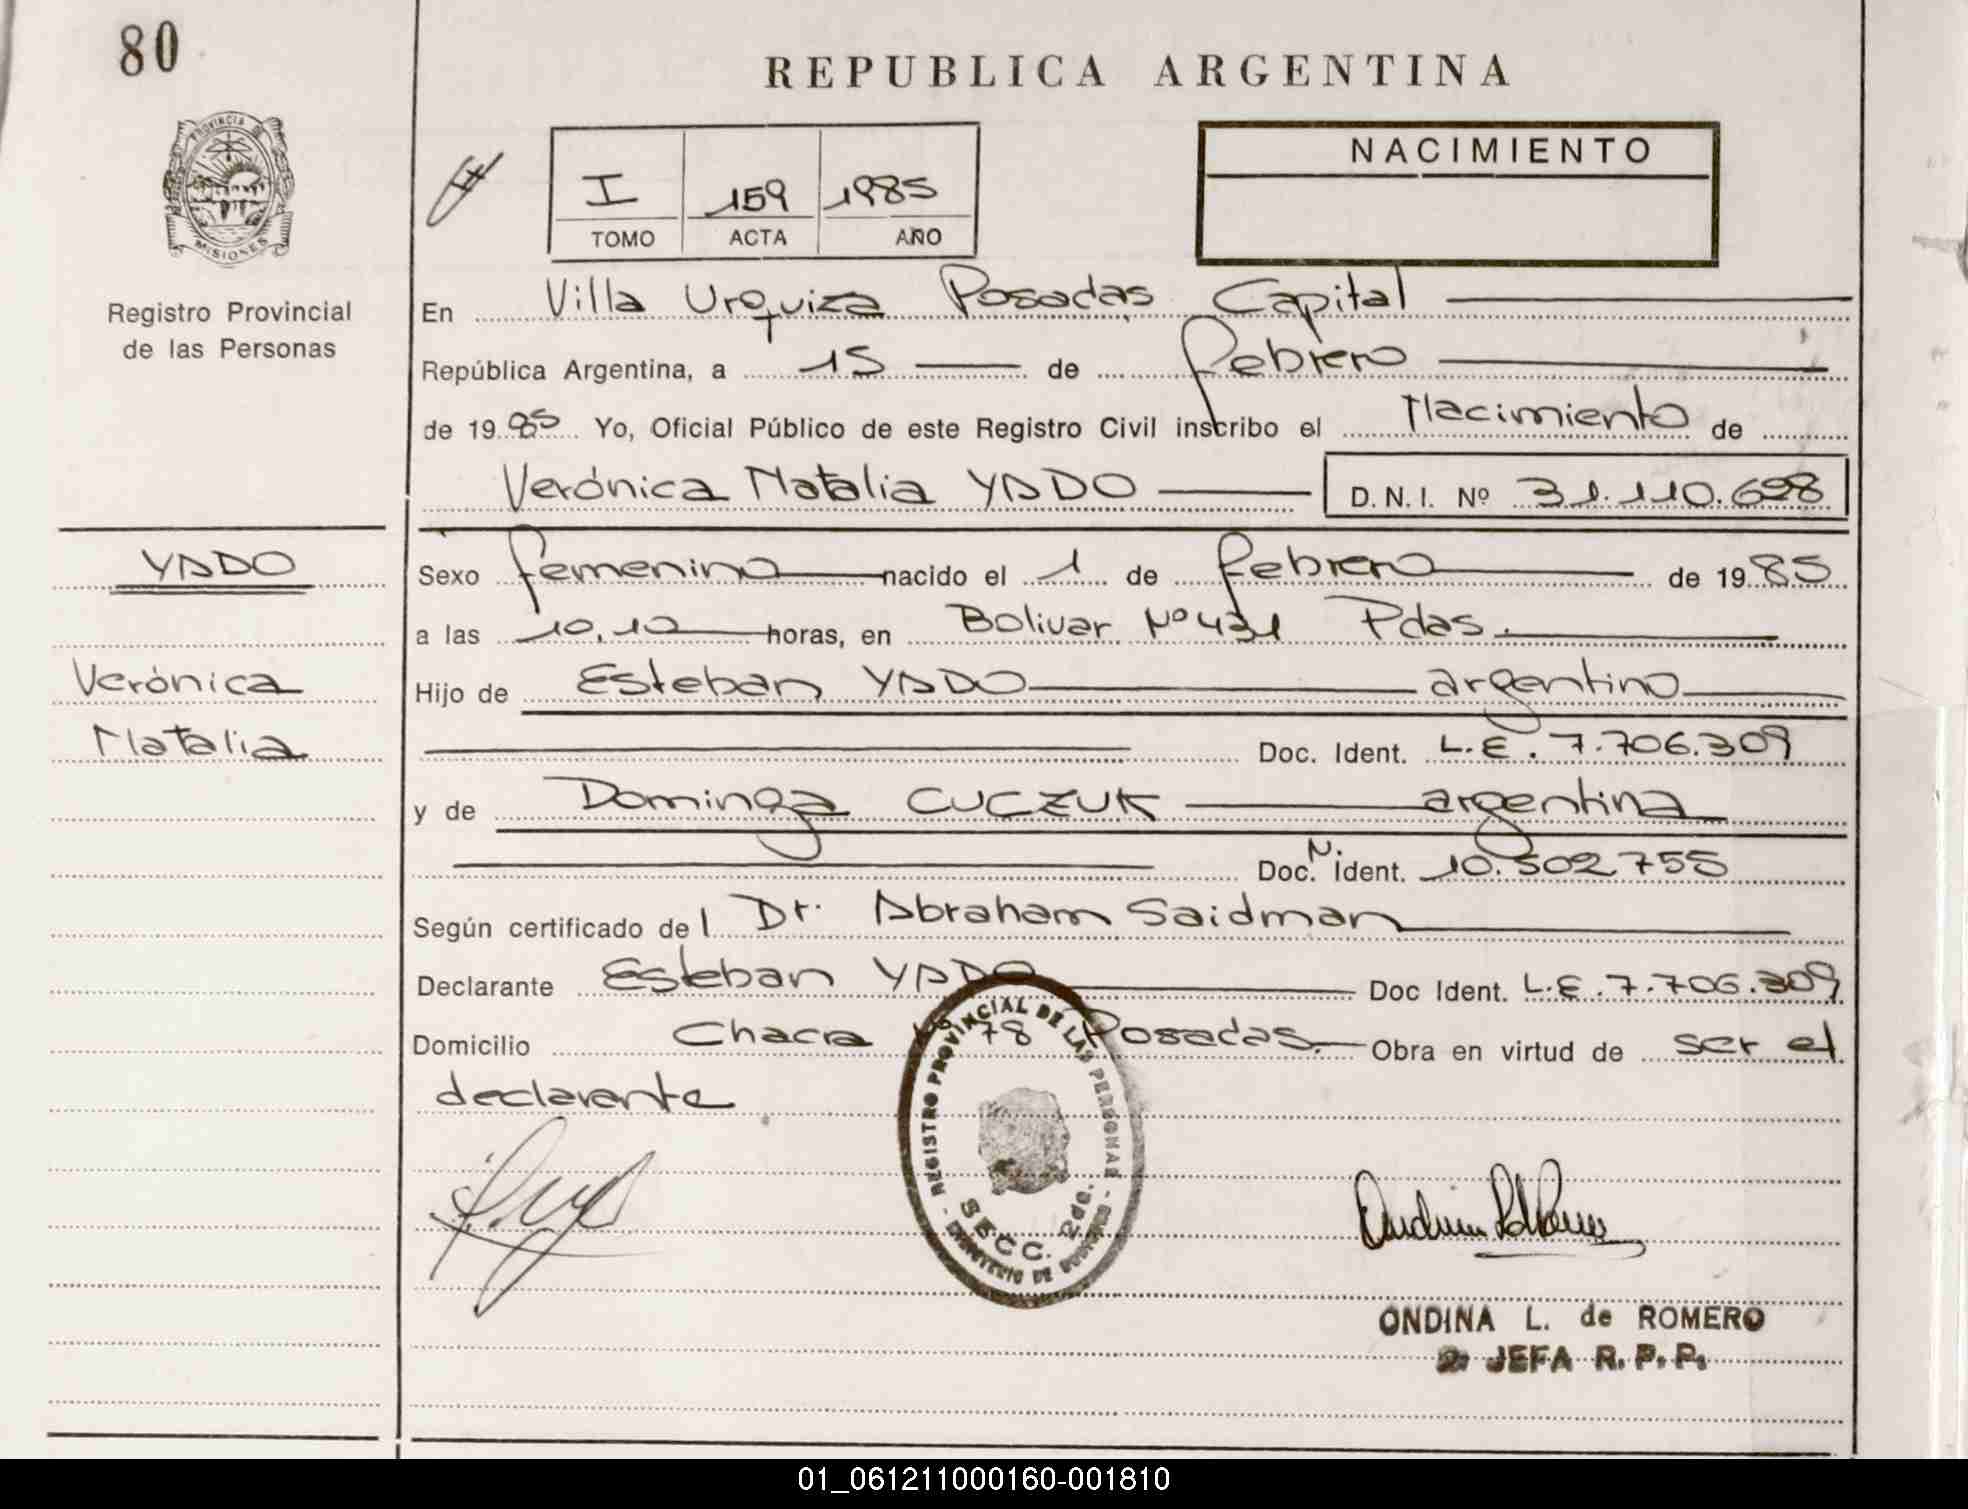 80
REPUBLICA ARGENTINA
PROVINCIA DE
MISIONES
Registro Provincial
de las Personas
I 159 1985
TOMO ACTA AÑO
NACIMIENTO
En Villa Urquiza Posadas Capital
República Argentina, a 15 de febrero
de 1985 Yo, Oficial Público de este Registro Civil inscribo el Nacimiento de
Verónica Natalia YADO D.N.I. Nº 31.110.698
YADO
Verónica
Natalia
Sexo femenino nacido el 1 de febrero de 1985
a las 10,10 horas, en Bolivar Nº 431 Pdas.
Hijo de Esteban YADO argentino
Doc. Ident. L.E. 7.706.309
y de Dominga CUCZUK argentina
Doc. N. Ident. 10.502.755
Según certificado del Dr. Abraham Saidman
Declarante Esteban YADO Doc Ident. L.E. 7.706.309
Domicilio Chacra 78 Posadas. Obra en virtud de ser el
declarante
REGISTRO PROVINCIAL DE LAS PERSONAS
SECC. 2da.
MINISTERIO DE GOBIERNO
ONDINA L. de ROMERO
2º JEFA R. P. P.
01_061211000160-001810